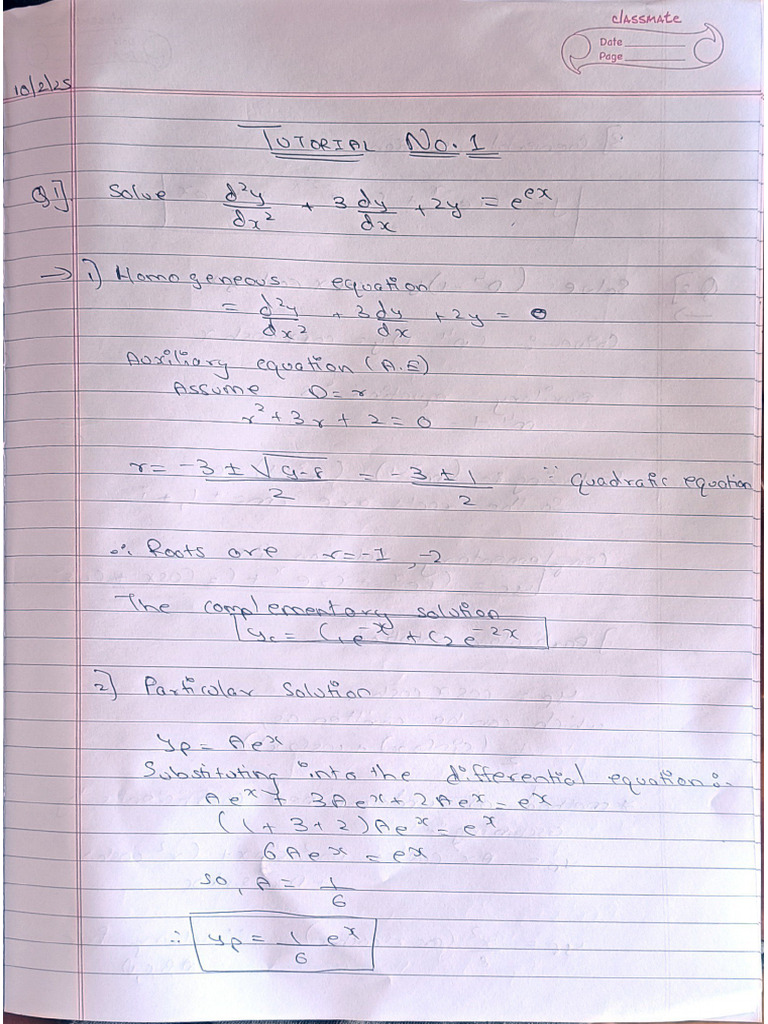 classmate
Date
Page
10/2/25
TUTORIAL No. 1
Q1] Solve d²y/dx² + 3 dy/dx + 2y = e^e^x
→ 1) Homogeneous equation
= d²y/dx² + 3 dy/dx + 2y = 0
Auxiliary equation (A.E)
Assume D = r
r² + 3r + 2 = 0
r = -3 ± √9-8 / 2 = -3 ± 1 / 2 ∵ quadratic equation
∴ Roots are r = -1, -2
The complementary solution
yc = C₁e^-x + C₂e^-2x
2] Particular Solution
yp = Ae^x
Substituting into the differential equation:-
Ae^x + 3Ae^x + 2Ae^x = e^x
(1 + 3 + 2)Ae^x = e^x
6Ae^x = e^x
so, A = 1/6
∴ yp = 1/6 e^x